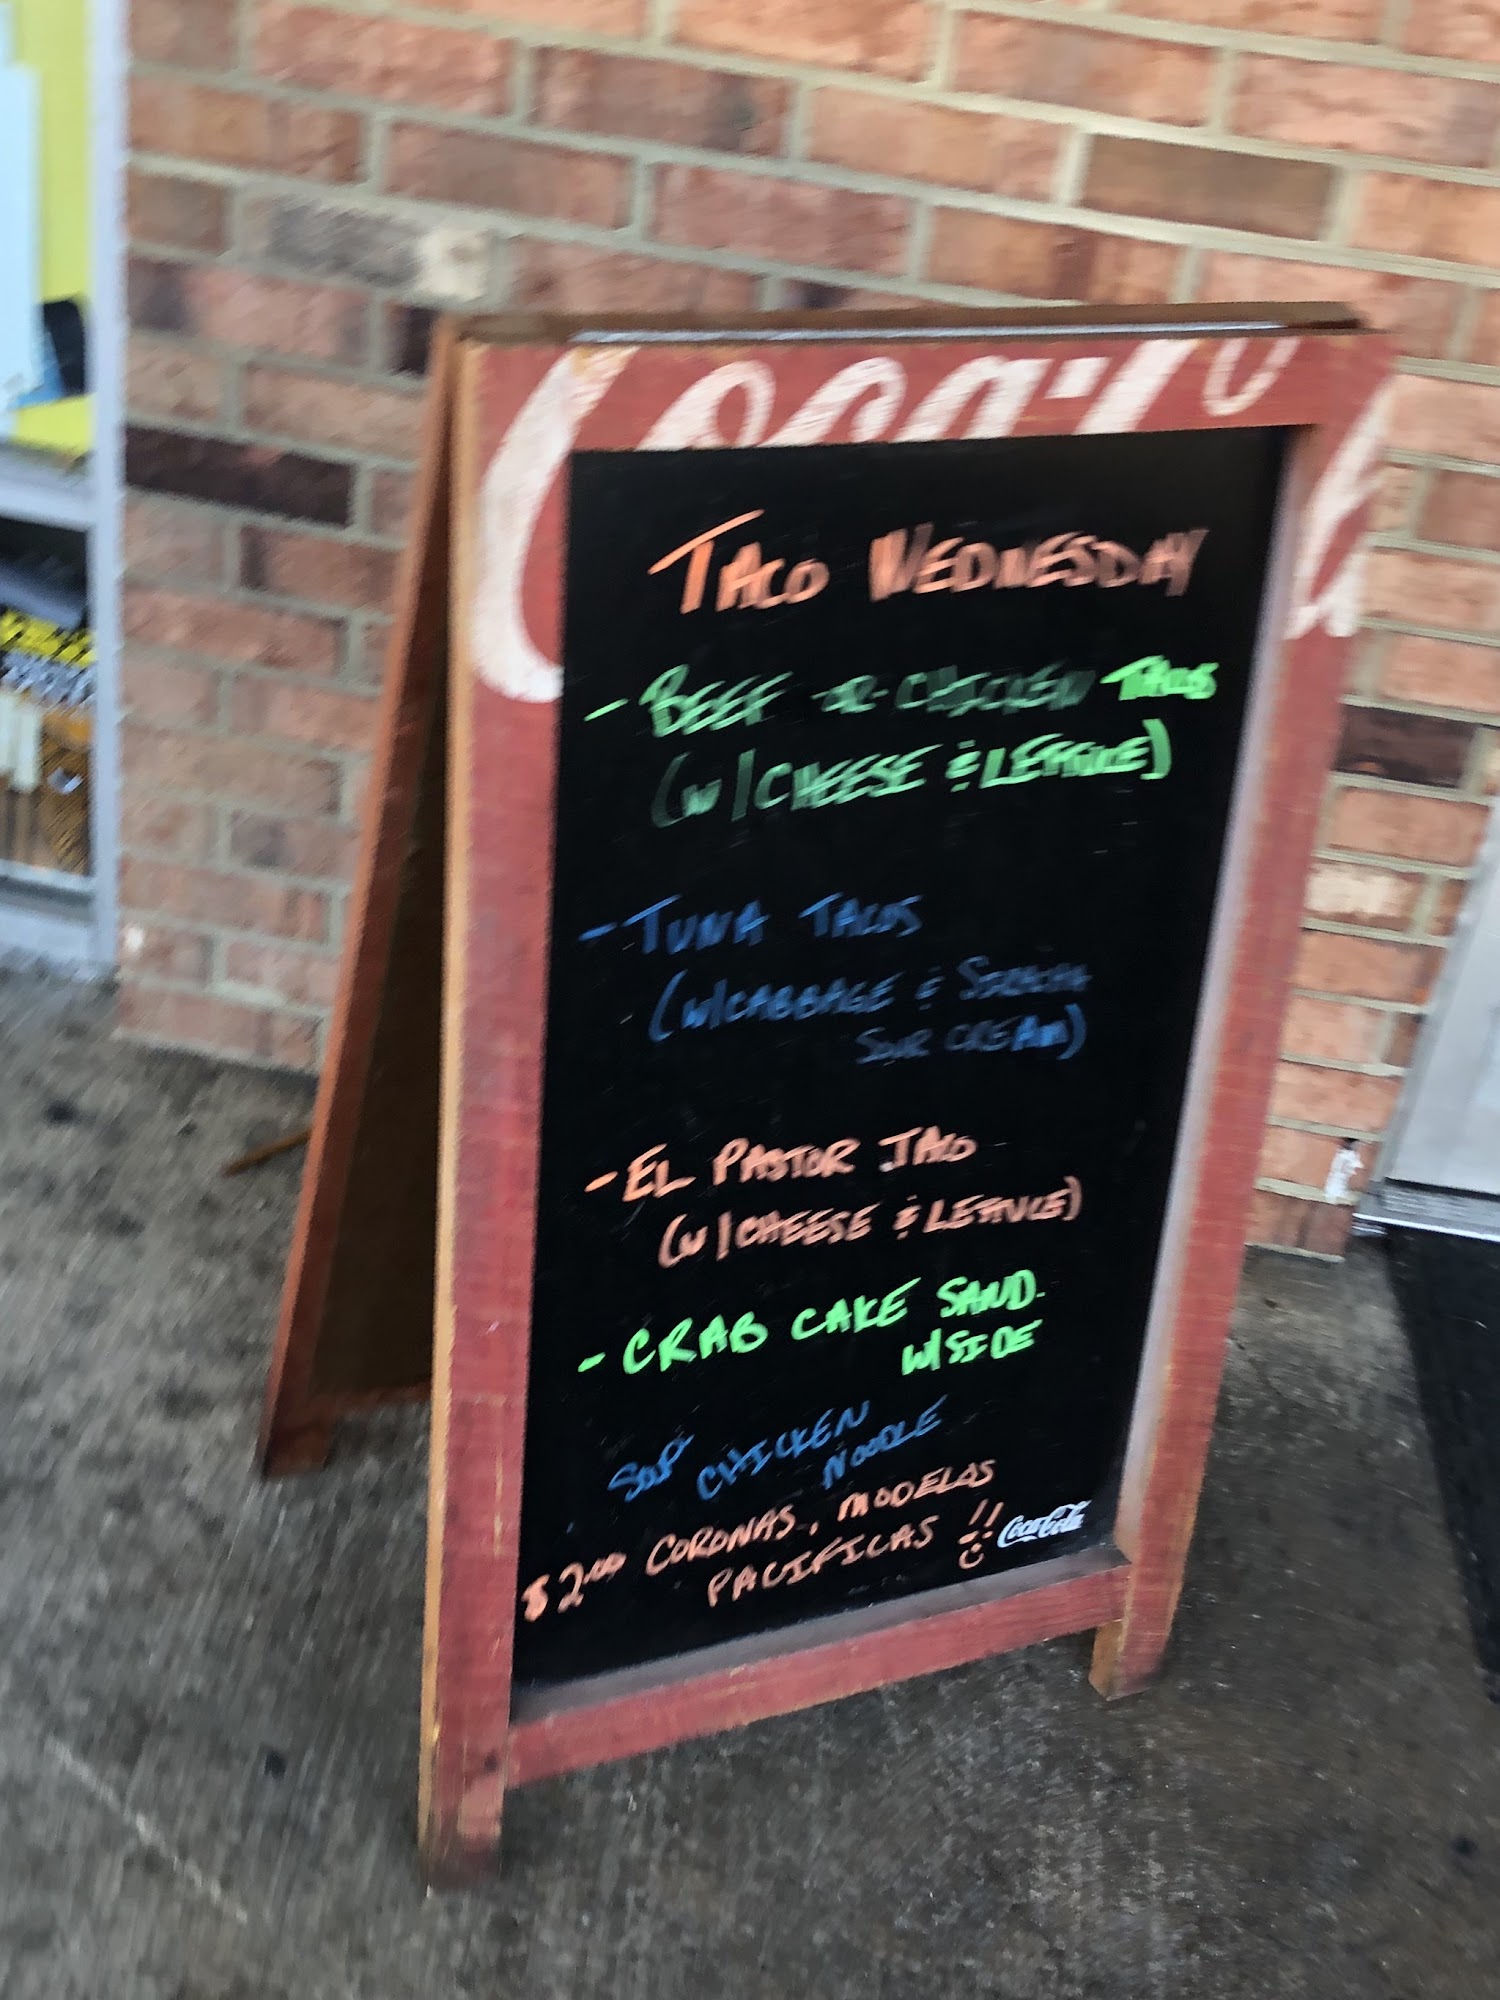 Coca-Cola
TACO WEDNESDAY
- BEEF OR CHICKEN TACOS
(W/CHEESE & LETTUCE)
- TUNA TACOS
(W/CABBAGE &
SOUR CREAM)
- EL PASTOR TACO
(W/CHEESE & LETTUCE)
- CRAB CAKE SAND.
W/SIDE
SOUP CHICKEN
NOODLE
$2.00 CORONAS, MODELOS
PACIFICAS !!
Coca-Cola